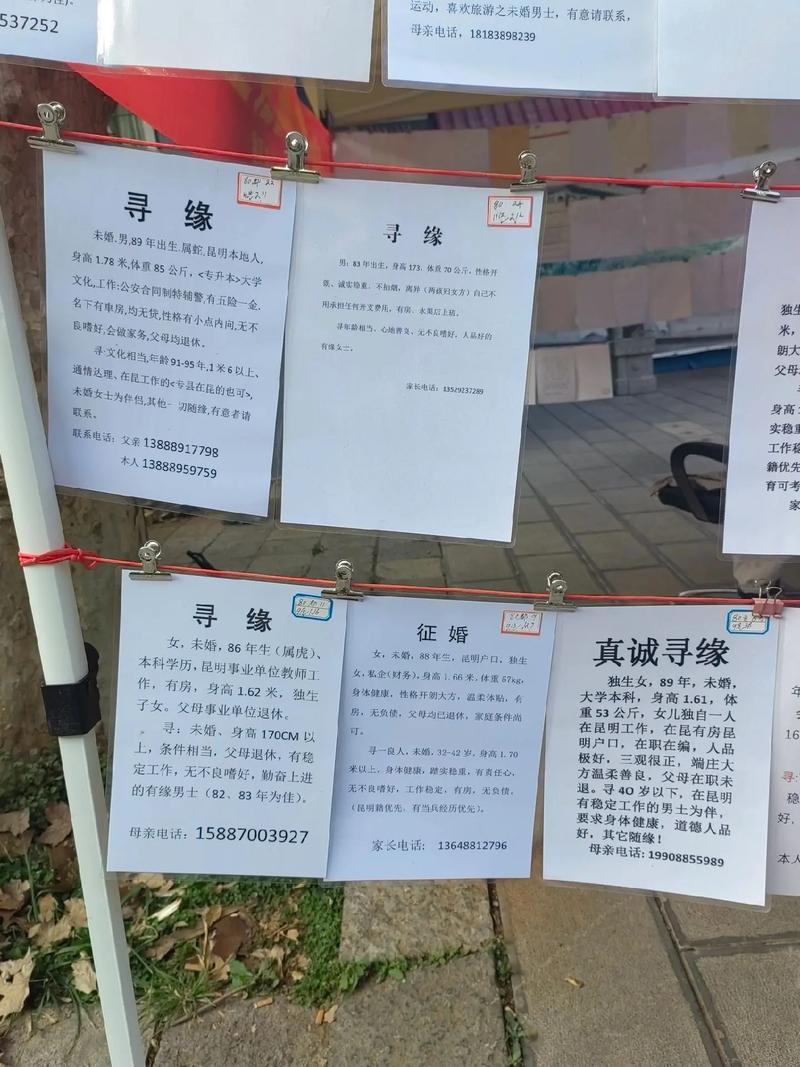 537252
运动，喜欢旅游之未婚男士，有意请联系，
母亲电话，18183898239
寻 缘
未婚.男,89 年出生.属蛇,昆明本地人,
身高 1.78 米,体重 85 公斤，<专升本>大学
文化,工作:公安合同制特辅警,有五险一金.
名下有车房，均无贷,性格有小点内向,无不
良嗜好,会做家务,父母均退休。
寻:文化相当,年龄 91-95 年,1 米 6 以上、
通情达理、在昆工作的<专县在昆的也可>,
未婚女士为伴侣,其他一切随缘,有意者请
联系。
联系电话：父亲 13888917798
本人 13888959759
寻 缘
男：83 年出生，身高 173，体重 70 公斤，性格开
朗、诚实稳重。不抽烟，离异（两孩归女方）自己不
用承担任何开支费用，有房，水果店上班。
寻年龄相当、心地善良、无不良嗜好，人品好的
有缘女士。
家长电话：13529237289
独生
米，
朗大
父母
身高 1
实稳重
工作稳
籍优先
育可考
家
寻 缘
女，未婚，86 年生（属虎）、
本科学历，昆明事业单位教师工
作，有房，身高 1.62 米，独生
子女。父母事业单位退休。
寻：未婚、身高 170CM 以
上，条件相当，父母退休，有稳
定工作，无不良嗜好，勤奋上进
的有缘男士（82、83 年为佳）。
母亲电话：15887003927
征 婚
女，未婚，88 年生，昆明户口，独生
女,私企(财务),身高 1.66 米,体重 57kg,
身体健康，性格开朗大方，温柔体贴，有
房，无负债，父母均已退休，家庭条件尚
可。
寻一良人，未婚，32-42 岁，身高 1.70
米以上，身体健康，踏实稳重，有责任心，
无不良嗜好，工作稳定，有房，无负债，
（昆明籍优先，有当兵经历优先）。
家长电话： 13648812796
真诚寻缘
独生女，89 年，未婚，
大学本科，身高 1.61，体
重 53 公斤，女儿独自一人
在昆明工作，在昆有房昆
明户口，在职在编，人品
极好，三观很正，端庄大
方温柔善良，父母在职未
退。寻 40 岁以下，在昆明
有稳定工作的男士为伴，
要求身体健康，道德人品
好，其它随缘！
母亲电话：19908855989
寻：
稳
好，
本人